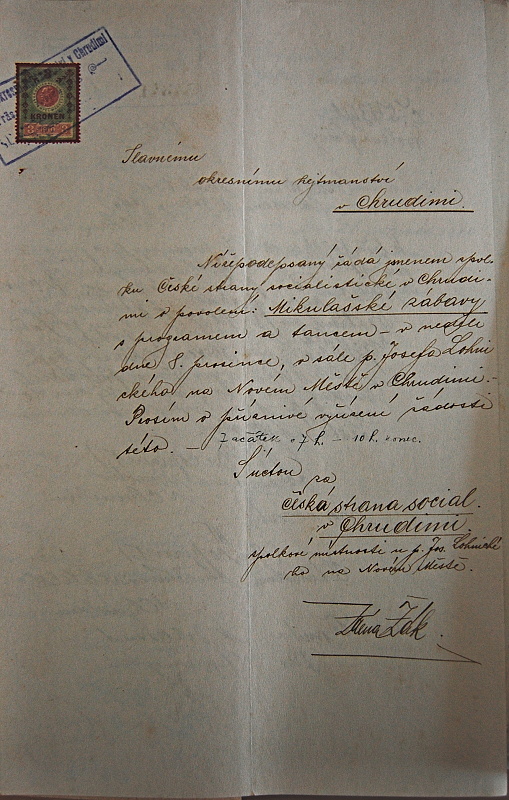 v Chrudimi
KRONEN
Slavnému
okresnímu hejtmanství
v Chrudimi.
Nížepodepsaný žádá jmenem spol-
ku České strany socialistické v Chrudi-
mi o povolení: Mikulášské zábavy
s programem a tancem – v neděli
dne 8. prosince, v sále p. Josefa Lohni-
ckého na Novém Městě v Chrudimi. –
Prosím o příznivé vyřízení žádosti
této. – Začátek o 7 h. – 10 h. konec.
S úctou
za
Česká strana social.
v Chrudimi.
spolkové místnosti u p. Jos. Lohnické
ho na Novém Městě.
Žák.